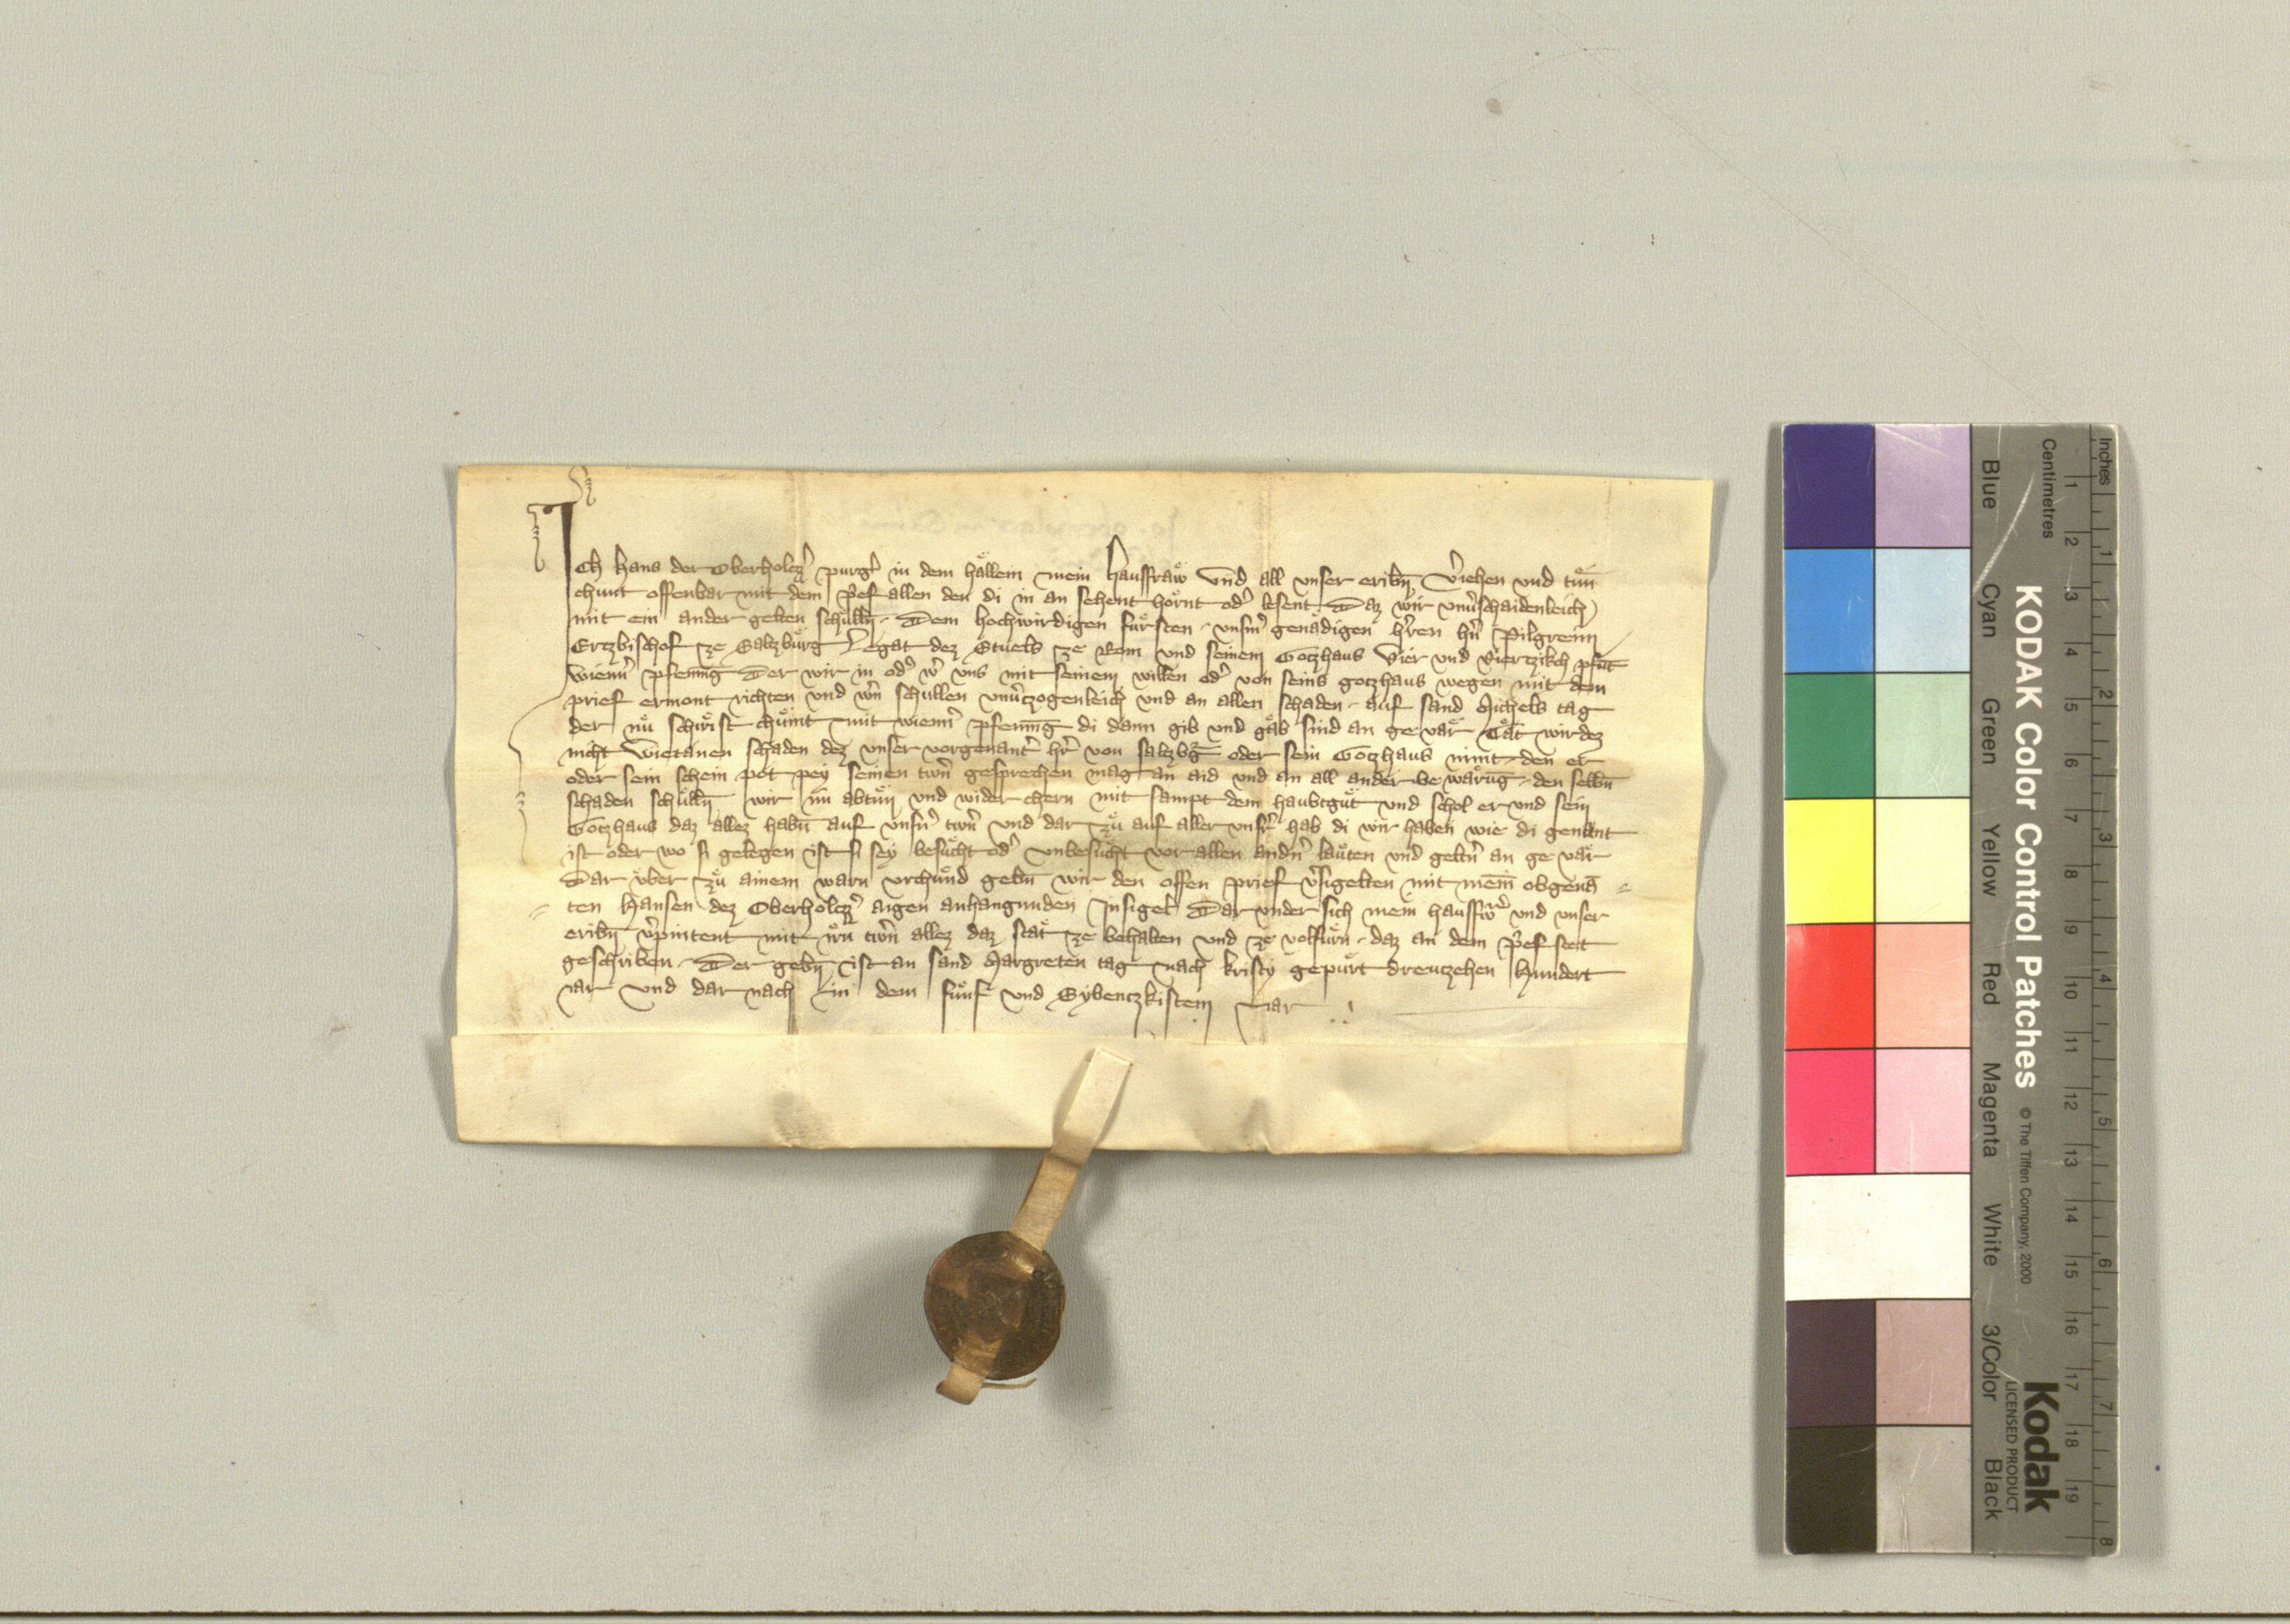 Ich Hans der Oberholczer purger in dem hællein mein hausfraw vnd all vnser eribn veriehen vnd tuͤn
chunt offenbar mit dem prief allen den di in an sehent hoͤrnt oder lesent Daz wir vnuerschaidenleich
mit ein ander gelten schullen Dem hochwirdigen fuͤrsten vnserm genadigen herren hern Pilgreim
Ertzbischof ze Salzburg Legat dez Stuels ze Rom vnd seinem Gotzhaus Vier vnd Viertzikch pfunt
wienner pfenning Der wir in oder wer vns mit seinem willen oder von seins gotzhaus wegen mit dem
prief ermont richten vnd wern schullen vnuerczogenleich vnd an allen schaden auf sand Michels tag
der nu schirist chuͤmt mit wienner pfenning di dann gib vnd gaͤb sind an gevaͤr Taͤt wir dez
nicht wietanen schaden dez vnser vorgenanter her von salzburg oder sein Gotzhaus nimt den er
oder sein schein pot pey seinen trewn gesprechen mag an aid vnd an all ander bewarung den selben
schaden schulln wir im abtuͤn vnd wider chern mit sampt dem haubtguͤt vnd schol er vnd sein
Gotzhaus daz allez habn auf vnsern trewn vnd dar zuͤ auf aller vnsrer hab di wir haben wie di genant
ist oder wo si gelegen ist si sey besuͤcht oder vnbesuͤcht vor allen andern laͤuten vnd geltern an gevaͤr
Dar vber zuͤ ainem warn vrchuͤnd gebn wir den offen prief versigelten mit meim obgenan
ten Hansen dez Oberholczer aigen anhangunden Insigel Dar vnder sich mein hausfraw vnd vnser
eribn verpintent mit irn trewn allez daz staͤt ze behalten vnd ze volfuͤrn daz an dem prief stet
geschriben Der gebn ist an sand Margreten tag nach kristy gepuͤrt dreutzehen Hundert
iar vnd dar nach in dem fuͤnf vnd Sybenczkistem Iar
KODAK Color Control Patches © The Tiffen Company, 2000
Kodak
LICENSED PRODUCT
Inches 1 2 3 4 5 6 7 8
Centimetres 1 2 3 4 5 6 7 8 9 10 11 12 13 14 15 16 17 18 19
Blue Cyan Green Yellow Red Magenta White 3/Color Black